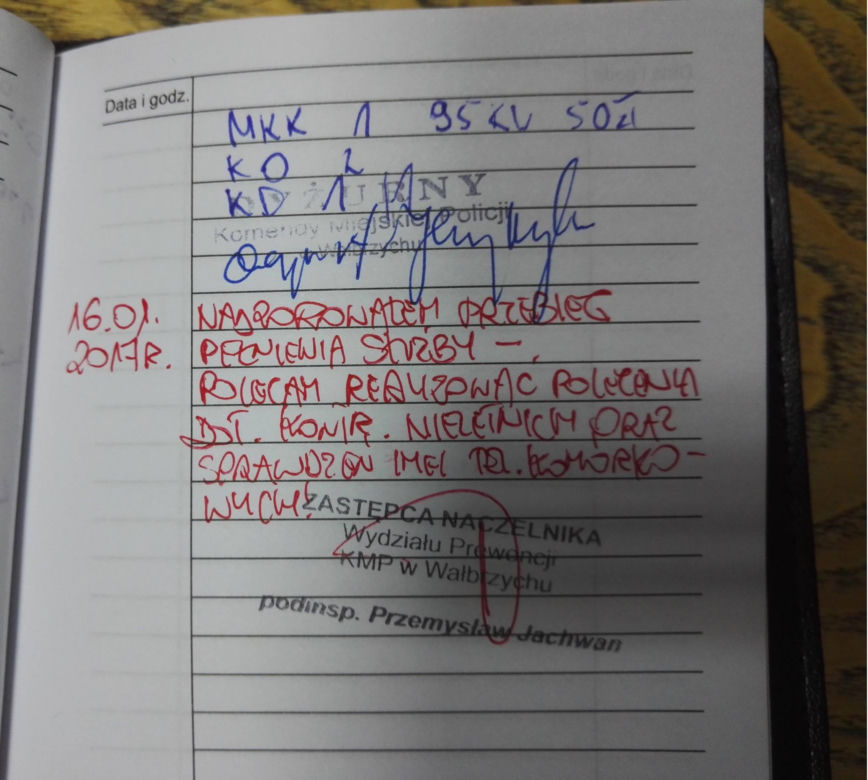 Data i godz.
MKK 1 95 KW 50zł
KO 2
KD 1
DYŻURNY
Komendy Miejskiej Policji
w Wałbrzychu
16.01. NADZOROWAŁEM PRZEBIEG
2017R. PEŁNIENIA SŁUŻBY –.
POLECAM REALIZOWAĆ POLECENIA
DOT. KONTR. NIELETNICH ORAZ
SPRAWDZEŃ IMEI TEL. KOMÓRKO-
WYCH!
ZASTĘPCA NACZELNIKA
Wydziału Prewencji
KMP w Wałbrzychu
podinsp. Przemysław Jachwan